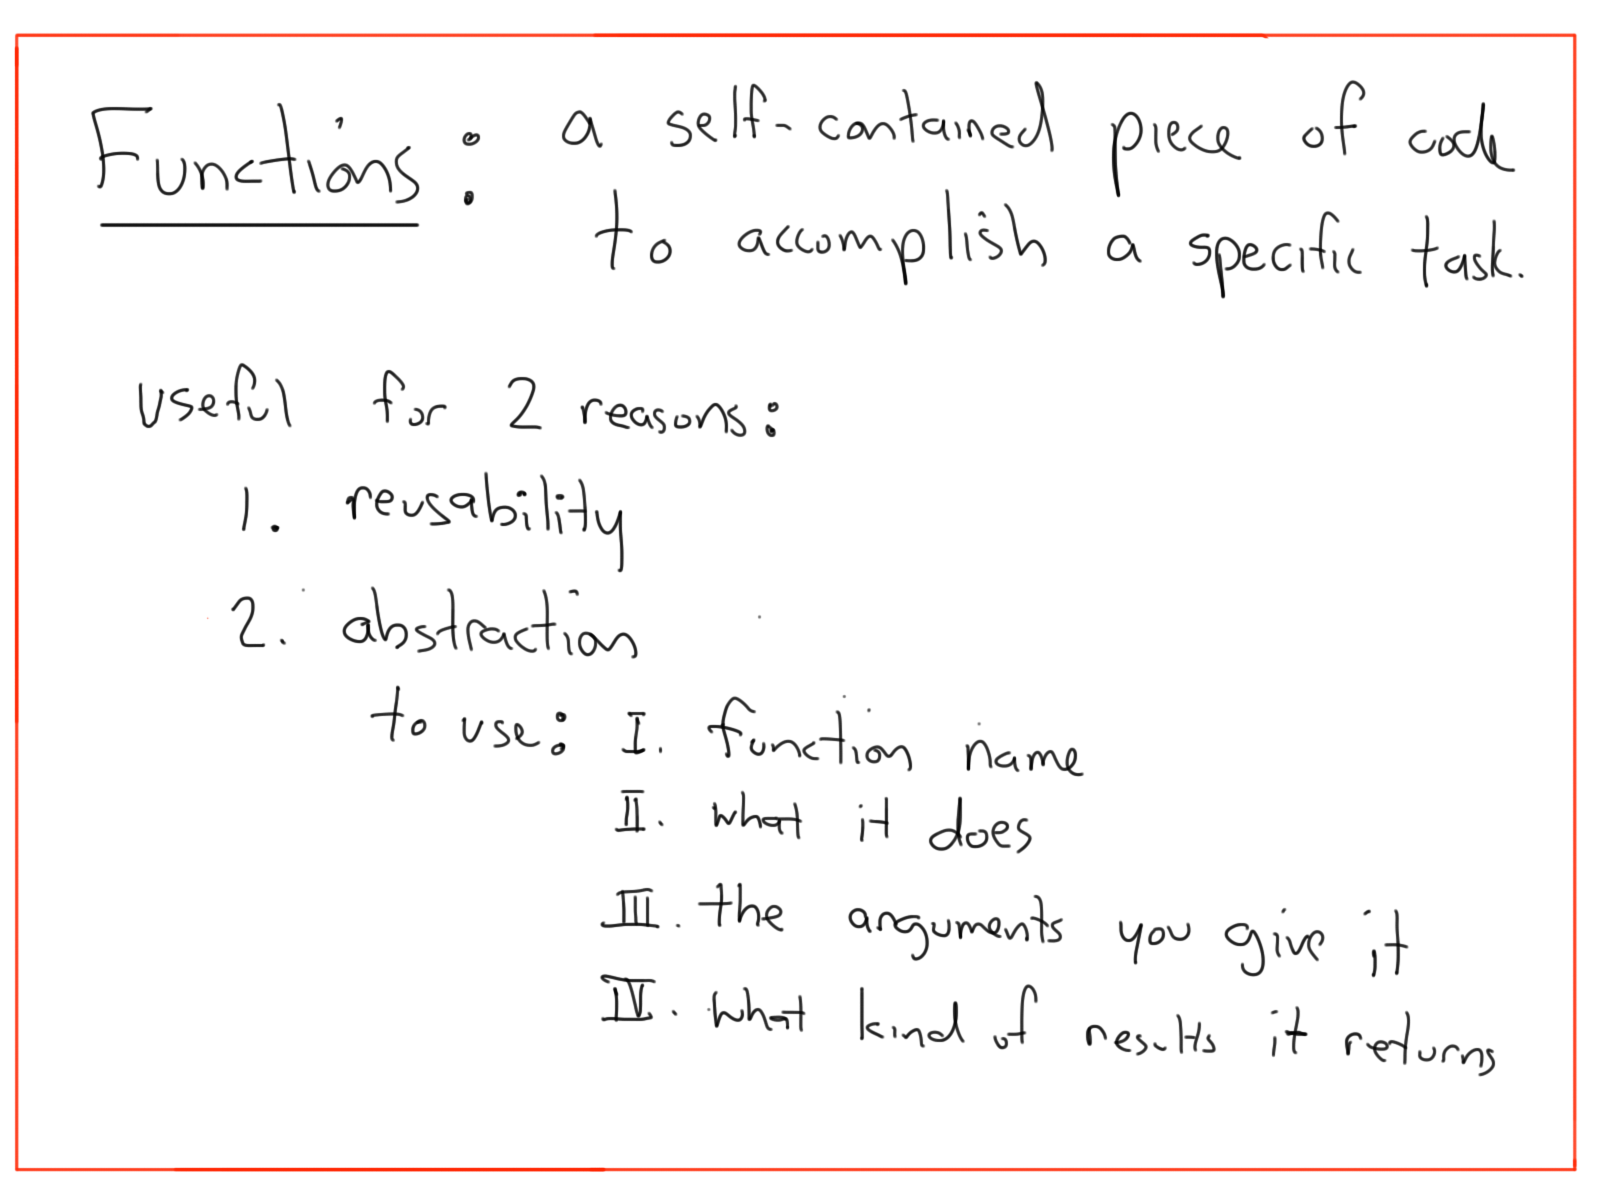 Functions: a self-contained piece of code
to accomplish a specific task.
useful for 2 reasons:
1. reusability
2. abstraction
to use: I. function name
II. what it does
III. the arguments you give it
IV. what kind of results it returns